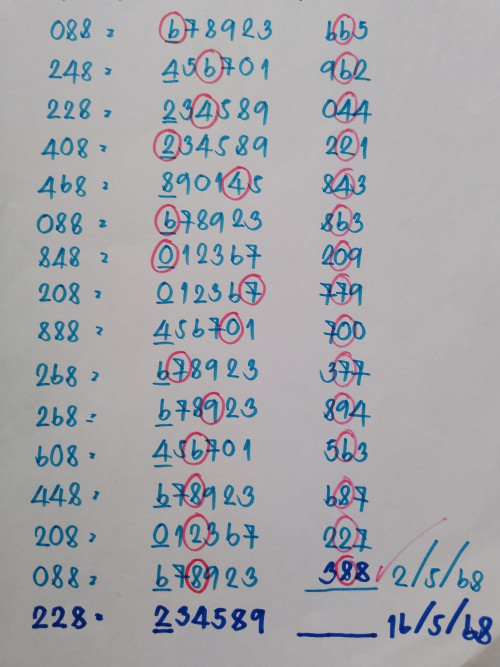 088 = 678923 665
248 = 456701 962
228 = 234589 044
408 = 234589 221
468 = 890145 843
088 = 678923 863
848 = 012367 209
208 = 012367 779
888 = 456701 700
268 = 678923 377
268 = 678923 894
608 = 456701 563
448 = 678923 687
208 = 012367 227
088 = 678923 388 2/5/68
228 = 234589 16/5/68